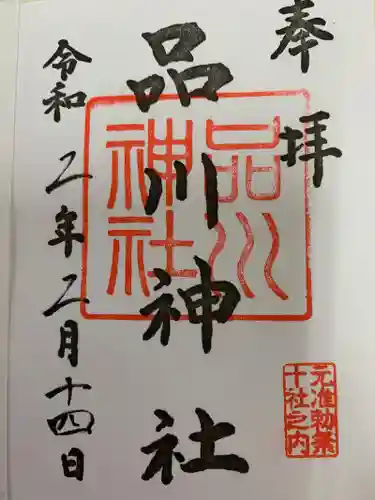 奉拝
品川神社
品川神社
令和二年二月十四日
元准勅祭
十社之内